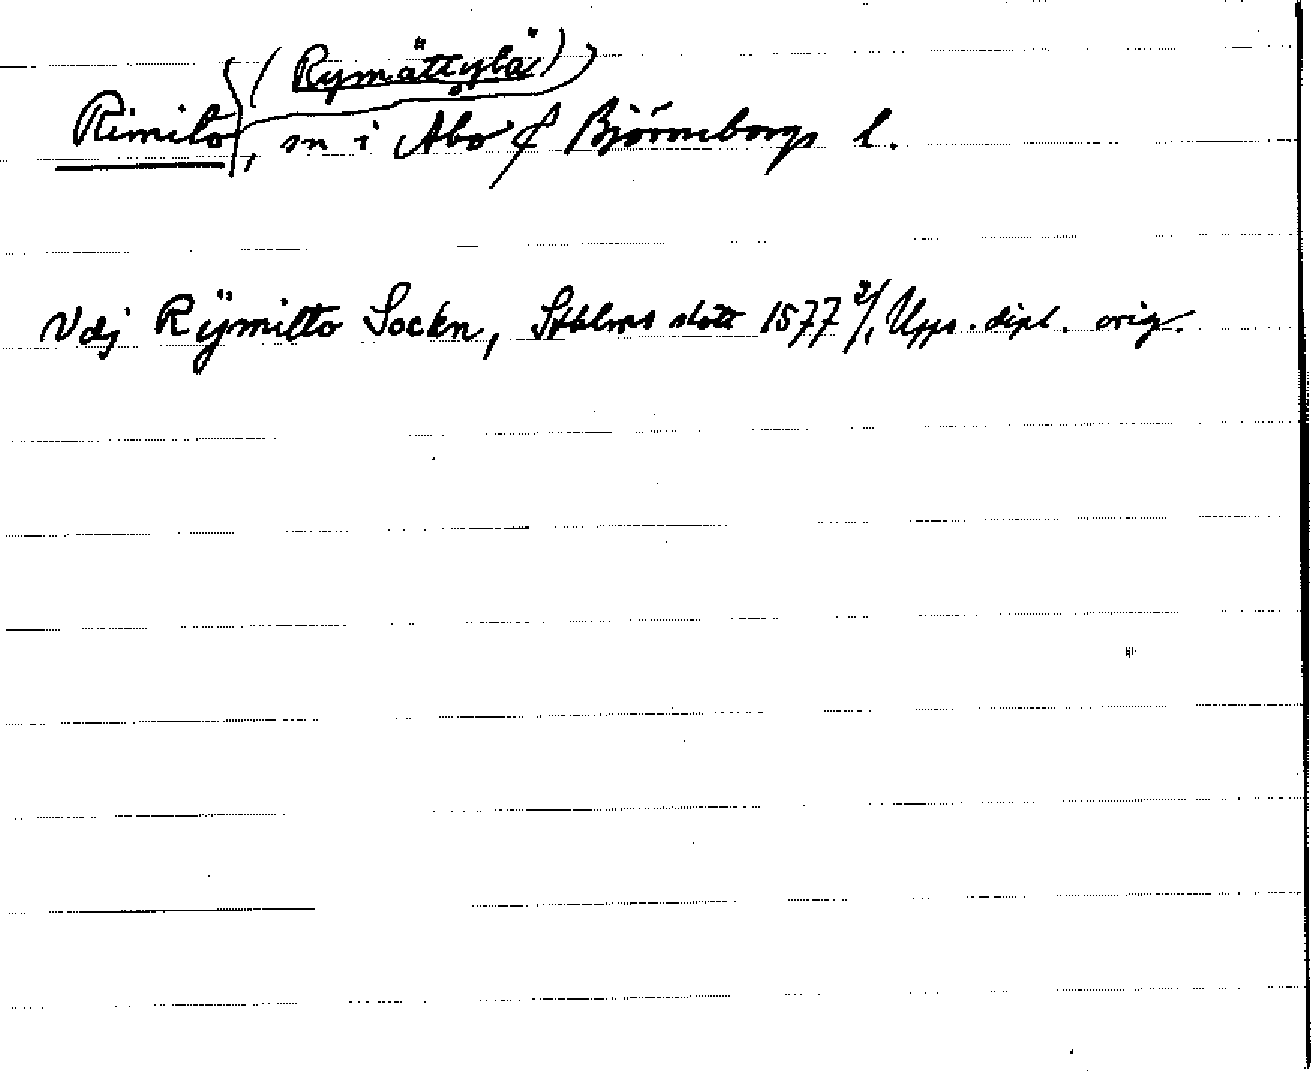 Rimito (Rymättylä), sn i Åbo & Björneborgs l.
Vdj Rÿmilto Sockn, Sthlms slott 1577 2/1 Upps. dipl. orig.